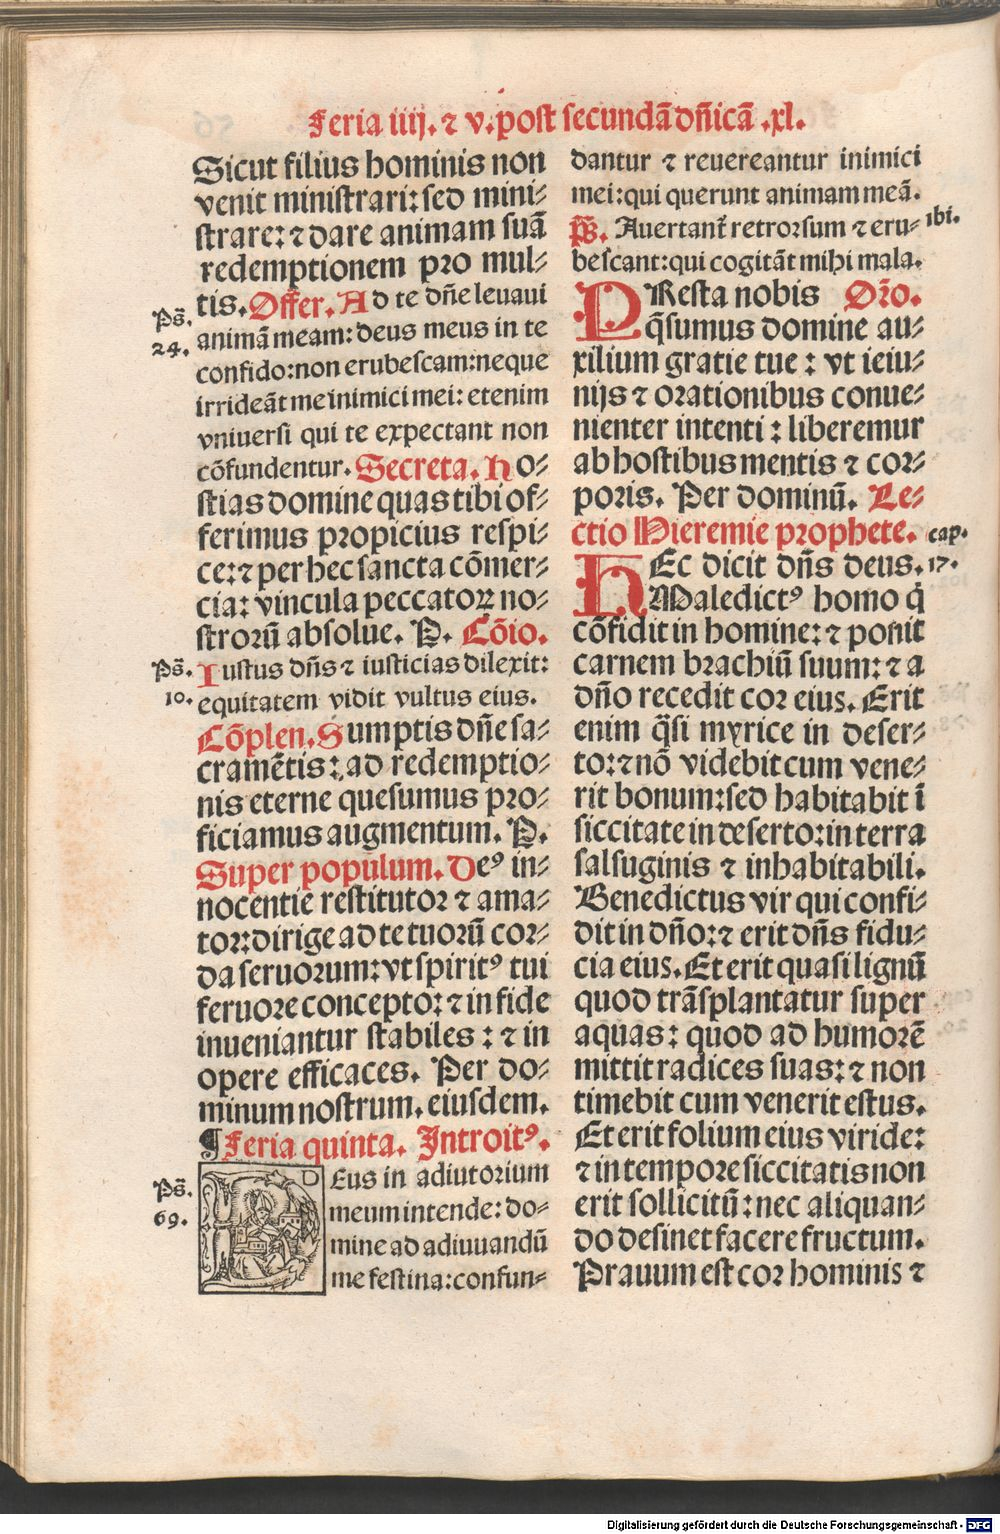 Feria iiij. ⁊ v. post secundā dn̄icā .xl.
Sicut filius hominis non
venit ministrari: sed mini⸗
strare: ⁊ dare animam suā
redemptionem pro mul⸗
tis. Offer. Ad te dn̄e leuaui
Ps̄.
24.
animā meam: deus meus in te
confido: non erubescam: neque
irrideāt me inimici mei: etenim
vniuersi qui te expectant non
cōfundentur. Secreta. Ho⸗
stias domine quas tibi of⸗
ferimus propicius respi⸗
ce: ⁊ per hec sancta cōmer⸗
cia: vincula peccatoꝝ no⸗
strorū absolue. P. Cōio.
Ps̄.
10.
Iustus dn̄s ⁊ iusticias dilexit:
equitatem vidit vultus eius.
Cōplen. Sumptis dn̄e sa⸗
cramētis: ad redemptio⸗
nis eterne quesumus pro⸗
ficiamus augmentum. P.
Super populum. Deꝰ in⸗
nocentie restitutor ⁊ ama⸗
tor: dirige ad te tuorū cor⸗
da seruorum: vt spiritꝰ tui
feruore concepto: ⁊ in fide
inueniantur stabiles: ⁊ in
opere efficaces. Per do⸗
minum nostrum. eiusdem.
¶ Feria quinta. Introitꝰ.
Ps̄.
69.
DEus in adiutorium
meum intende: do⸗
mine ad adiuuandū
me festina: confun⸗
dantur ⁊ reuereantur inimici
mei: qui querunt animam meā.
p̄s. Auertant̄ retrorsum ⁊ eru⸗
ibi.
bescant: qui cogitāt mihi mala.
PResta nobis Or̄o.
q̄sumus domine au⸗
xilium gratie tue: vt ieiu⸗
nijs ⁊ orationibus conue⸗
nienter intenti: liberemur
ab hostibus mentis ⁊ cor⸗
poris. Per dominū. Le⸗
ctio Hieremie prophete.
cap.
17.
HEc dicit dn̄s deus.
Maledictꝰ homo q̇
cōfidit in homine: ⁊ ponit
carnem brachiū suum: ⁊ a
dn̄o recedit cor eius. Erit
enim q̄si myrice in deser⸗
to: ⁊ nō videbit cum vene⸗
rit bonum: sed habitabit ī
siccitate in deserto: in terra
salsuginis ⁊ inhabitabili.
Benedictus vir qui confi⸗
dit in dn̄o: ⁊ erit dn̄s fidu⸗
cia eius. Et erit quasi lignū
quod trāsplantatur super
aquas: quod ad humorē
mittit radices suas: ⁊ non
timebit cum venerit estus.
Et erit folium eius viride:
⁊ in tempore siccitatis non
erit sollicitū: nec aliquan⸗
do desinet facere fructum.
Prauum est cor hominis ⁊
Digitalisierung gefördert durch die Deutsche Forschungsgemeinschaft - DFG